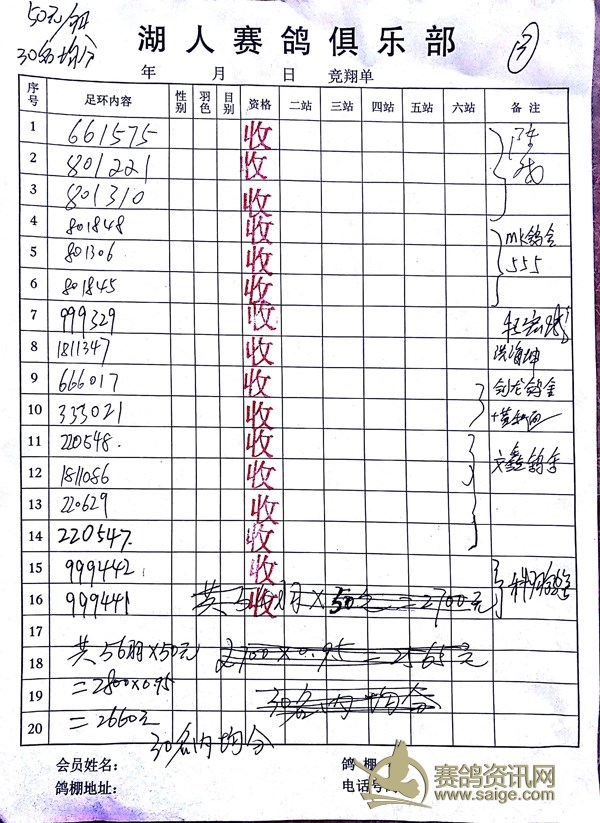 50元/羽
30名均分
③
湖人赛鸽俱乐部
年 月 日 竞翔单
序号 足环内容 性别 羽色 目别 资格 二站 三站 四站 五站 六站 备注
1 661575 收
2 801221 收
3 801310 收
4 801848 收 mk鸽舍
5 801306 收 555
6 801845 收
7 999329 收
8 1811347 收 洪海坤
9 666017 收 剑龙鸽舍
10 333021 收
11 220548. 收 文鑫鸽舍
12 1811086 收
13 220629 收
14 220547. 收
15 999442 收
16 999441 收 共54羽×50元=2700元
17
共56羽×50元
18 2700×0.95=2565元
=2800×0.95
19 30名内均分
=2660元
20
30名内均分
会员姓名: 鸽棚
鸽棚地址: 电话号
赛鸽资讯网
www.saige.com